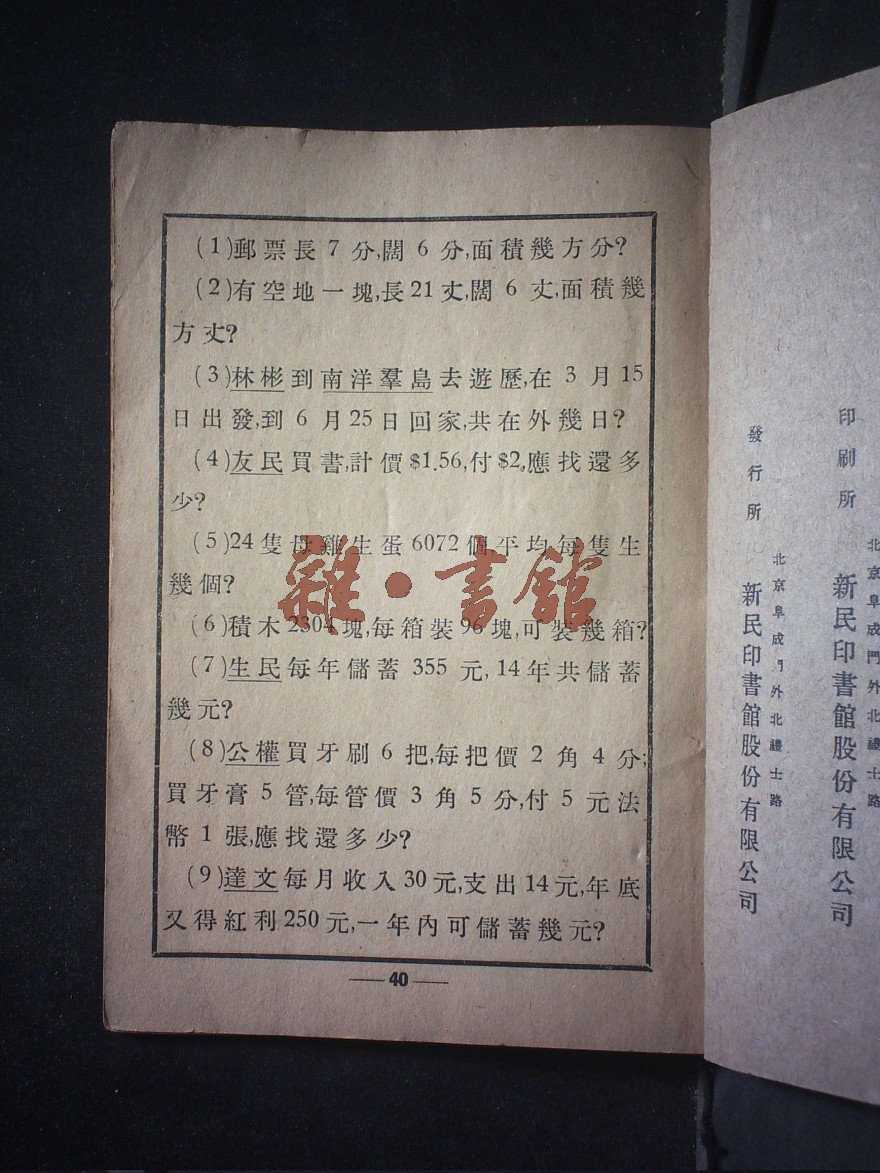 (1)郵票長7分,闊6分,面積幾方分?
(2)有空地一塊,長21丈,闊6丈,面積幾
方丈?
(3)林彬到南洋羣島去遊歷,在3月15
日出發,到6月25日回家,共在外幾日?
(4)友民買書,計價$1.56,付$2,應找還多
少?
(5)24隻母雞生蛋6072個平均每隻生
幾個?
(6)積木2304塊,每箱裝96塊,可裝幾箱?
(7)生民每年儲蓄355元,14年共儲蓄
幾元?
(8)公權買牙刷6把,每把價2角4分;
買牙膏5管,每管價3角5分,付5元法
幣1張,應找還多少?
(9)達文每月收入30元,支出14元,年底
又得紅利250元,一年內可儲蓄幾元?
40
雜·書館
北京阜成門外北禮士路
印刷所 新民印書館股份有限公司
北京阜成門外北禮士路
發行所 新民印書館股份有限公司